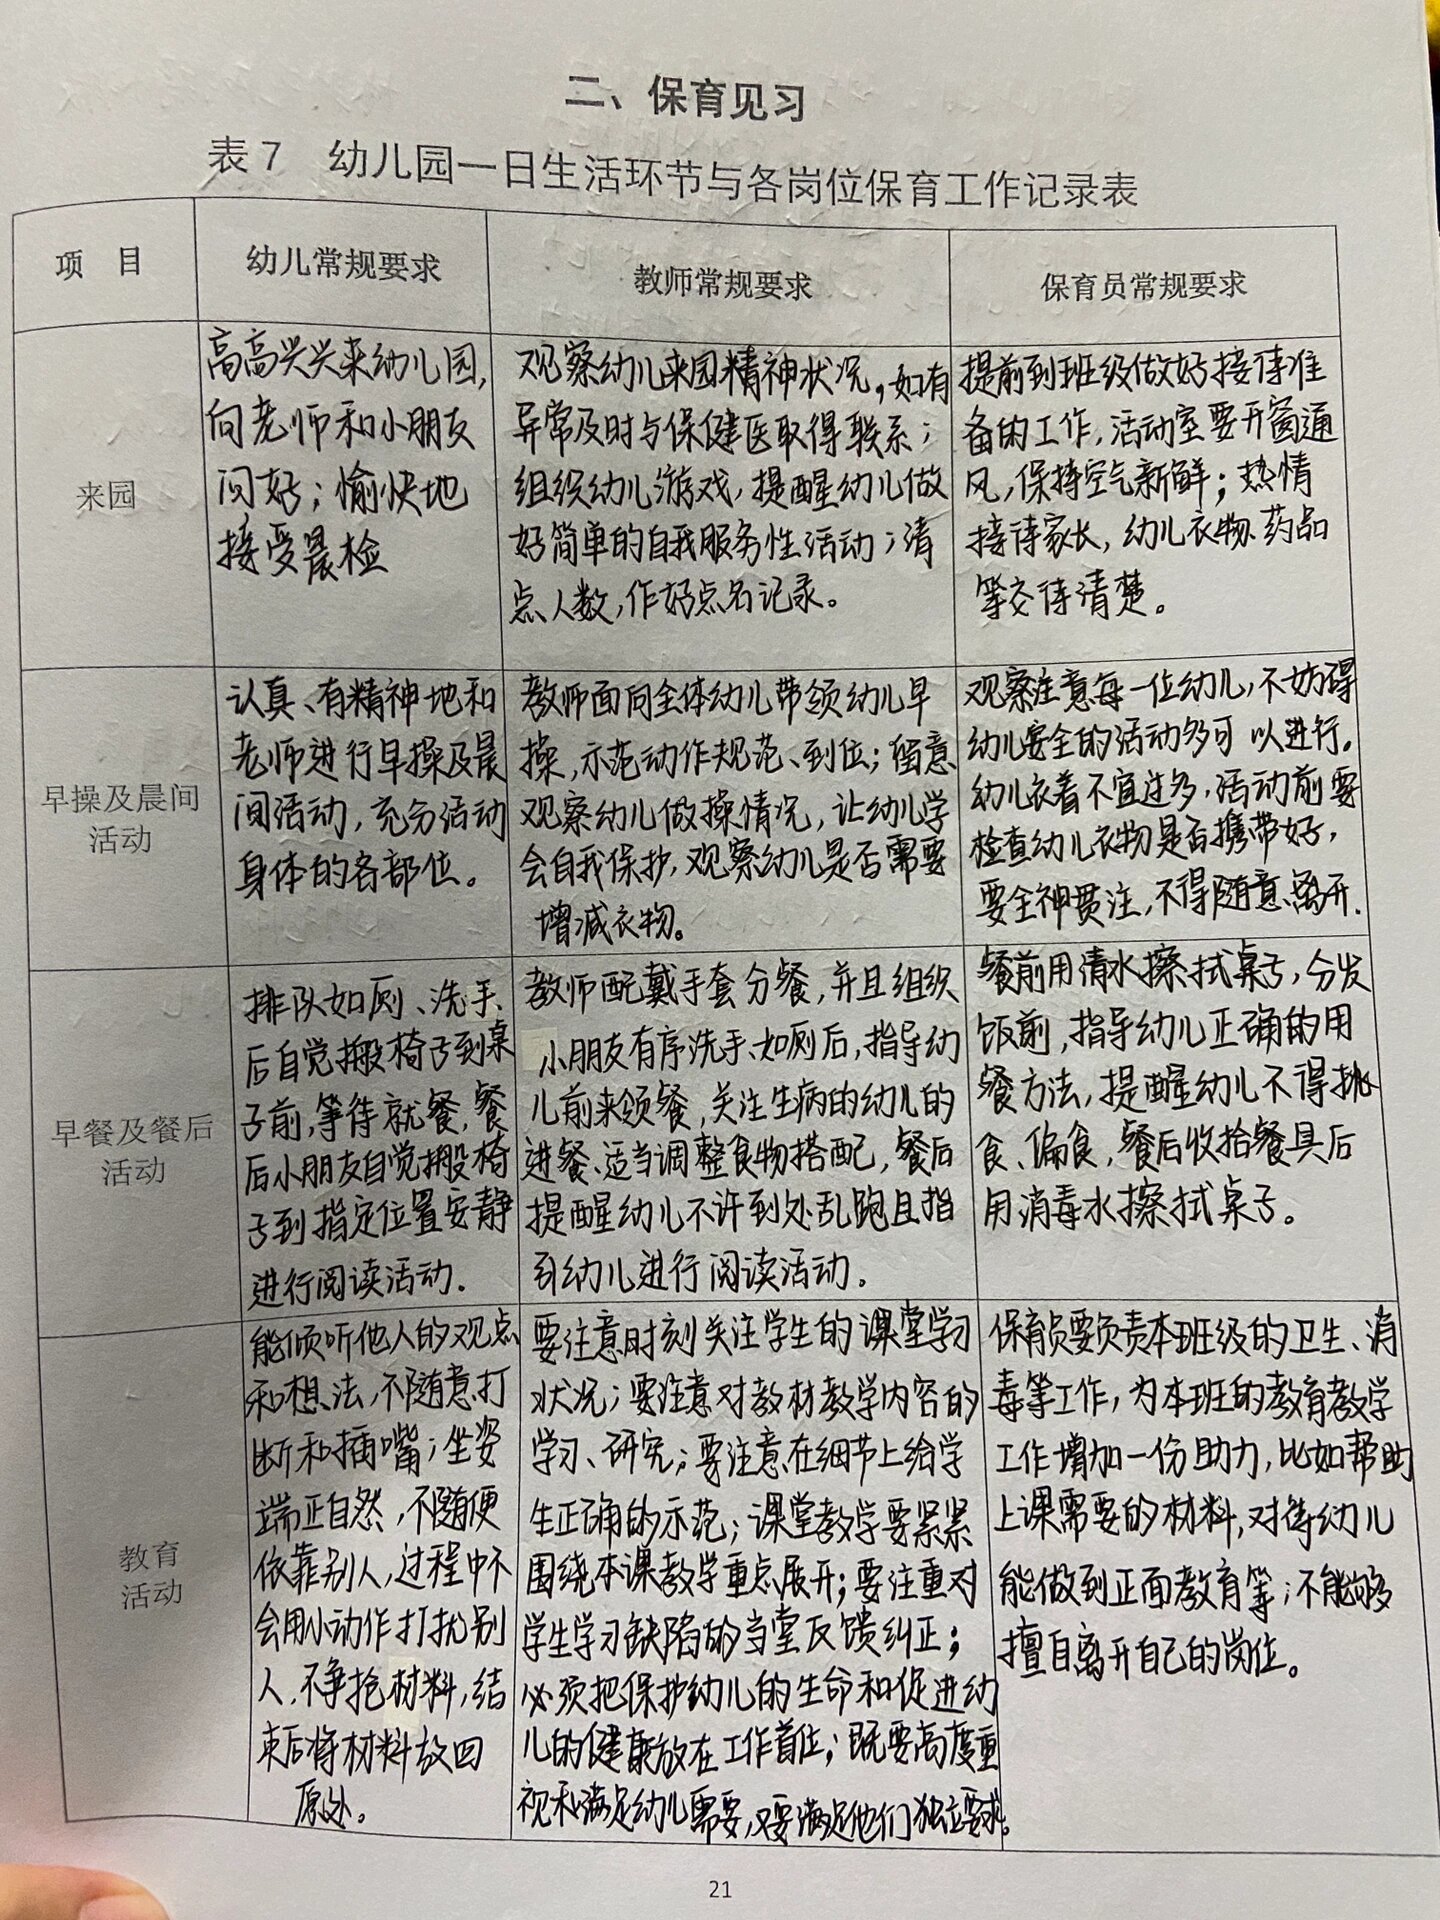 二、保育见习
表7 幼儿园一日生活环节与各岗位保育工作记录表
项 目
幼儿常规要求
教师常规要求
保育员常规要求
来园
高高兴兴来幼儿园,
向老师和小朋友
问好；愉快地
接受晨检
观察幼儿来园精神状况，如有
异常及时与保健医取得联系；
组织幼儿游戏，提醒幼儿做
好简单的自我服务性活动；清
点人数，作好点名记录。
提前到班级做好接待准
备的工作，活动室要开窗通
风，保持空气新鲜；热情
接待家长，幼儿衣物、药品
等交待清楚。
早操及晨间
活动
认真、有精神地和
老师进行早操及晨
间活动，充分活动
身体的各部位。
教师面向全体幼儿带领幼儿早
操，示范动作规范、到位；留意
观察幼儿做操情况，让幼儿学
会自我保护，观察幼儿是否需要
增减衣物。
观察注意每一位幼儿，不妨碍
幼儿安全的活动多可以进行。
幼儿衣着不宜过多，活动前要
检查幼儿衣物是否携带好，
要全神贯注，不得随意离开.
早餐及餐后
活动
排队如厕、洗手、
后自觉搬椅子到桌
子前，等待就餐，餐
后小朋友自觉搬椅
子到指定位置安静
进行阅读活动.
教师配戴手套分餐，并且组织
小朋友有序洗手、如厕后，指导幼
儿前来领餐，关注生病的幼儿的
进餐、适当调整食物搭配，餐后
提醒幼儿不许到处乱跑且指
引幼儿进行阅读活动.
餐前用清水擦拭桌子，分发
饭前，指导幼儿正确的用
餐方法，提醒幼儿不得挑
食、偏食，餐后收拾餐具后
用消毒水擦拭桌子。
教育
活动
能倾听他人的观点
和想法，不随意打
断和插嘴；坐姿
端正自然，不随便
依靠别人，过程中不
会用小动作打扰别
人，不争抢材料，结
束后将材料放回
原处。
要注意时刻关注学生的课堂学习
状况；要注意对教材教学内容的
学习、研究；要注意在细节上给学
生正确的示范；课堂教学要紧紧
围绕本课教学重点展开；要注重对
学生学习缺陷的当堂反馈纠正；
必须把保护幼儿的生命和促进幼
儿的健康放在工作首位；既要高度重
视和满足幼儿需要，又要满足他们独立要求。
保育员要负责本班级的卫生、消
毒等工作，为本班的教育教学
工作增加一份助力，比如帮助
上课需要的材料，对待幼儿
能做到正面教育等；不能够
擅自离开自己的岗位。
21